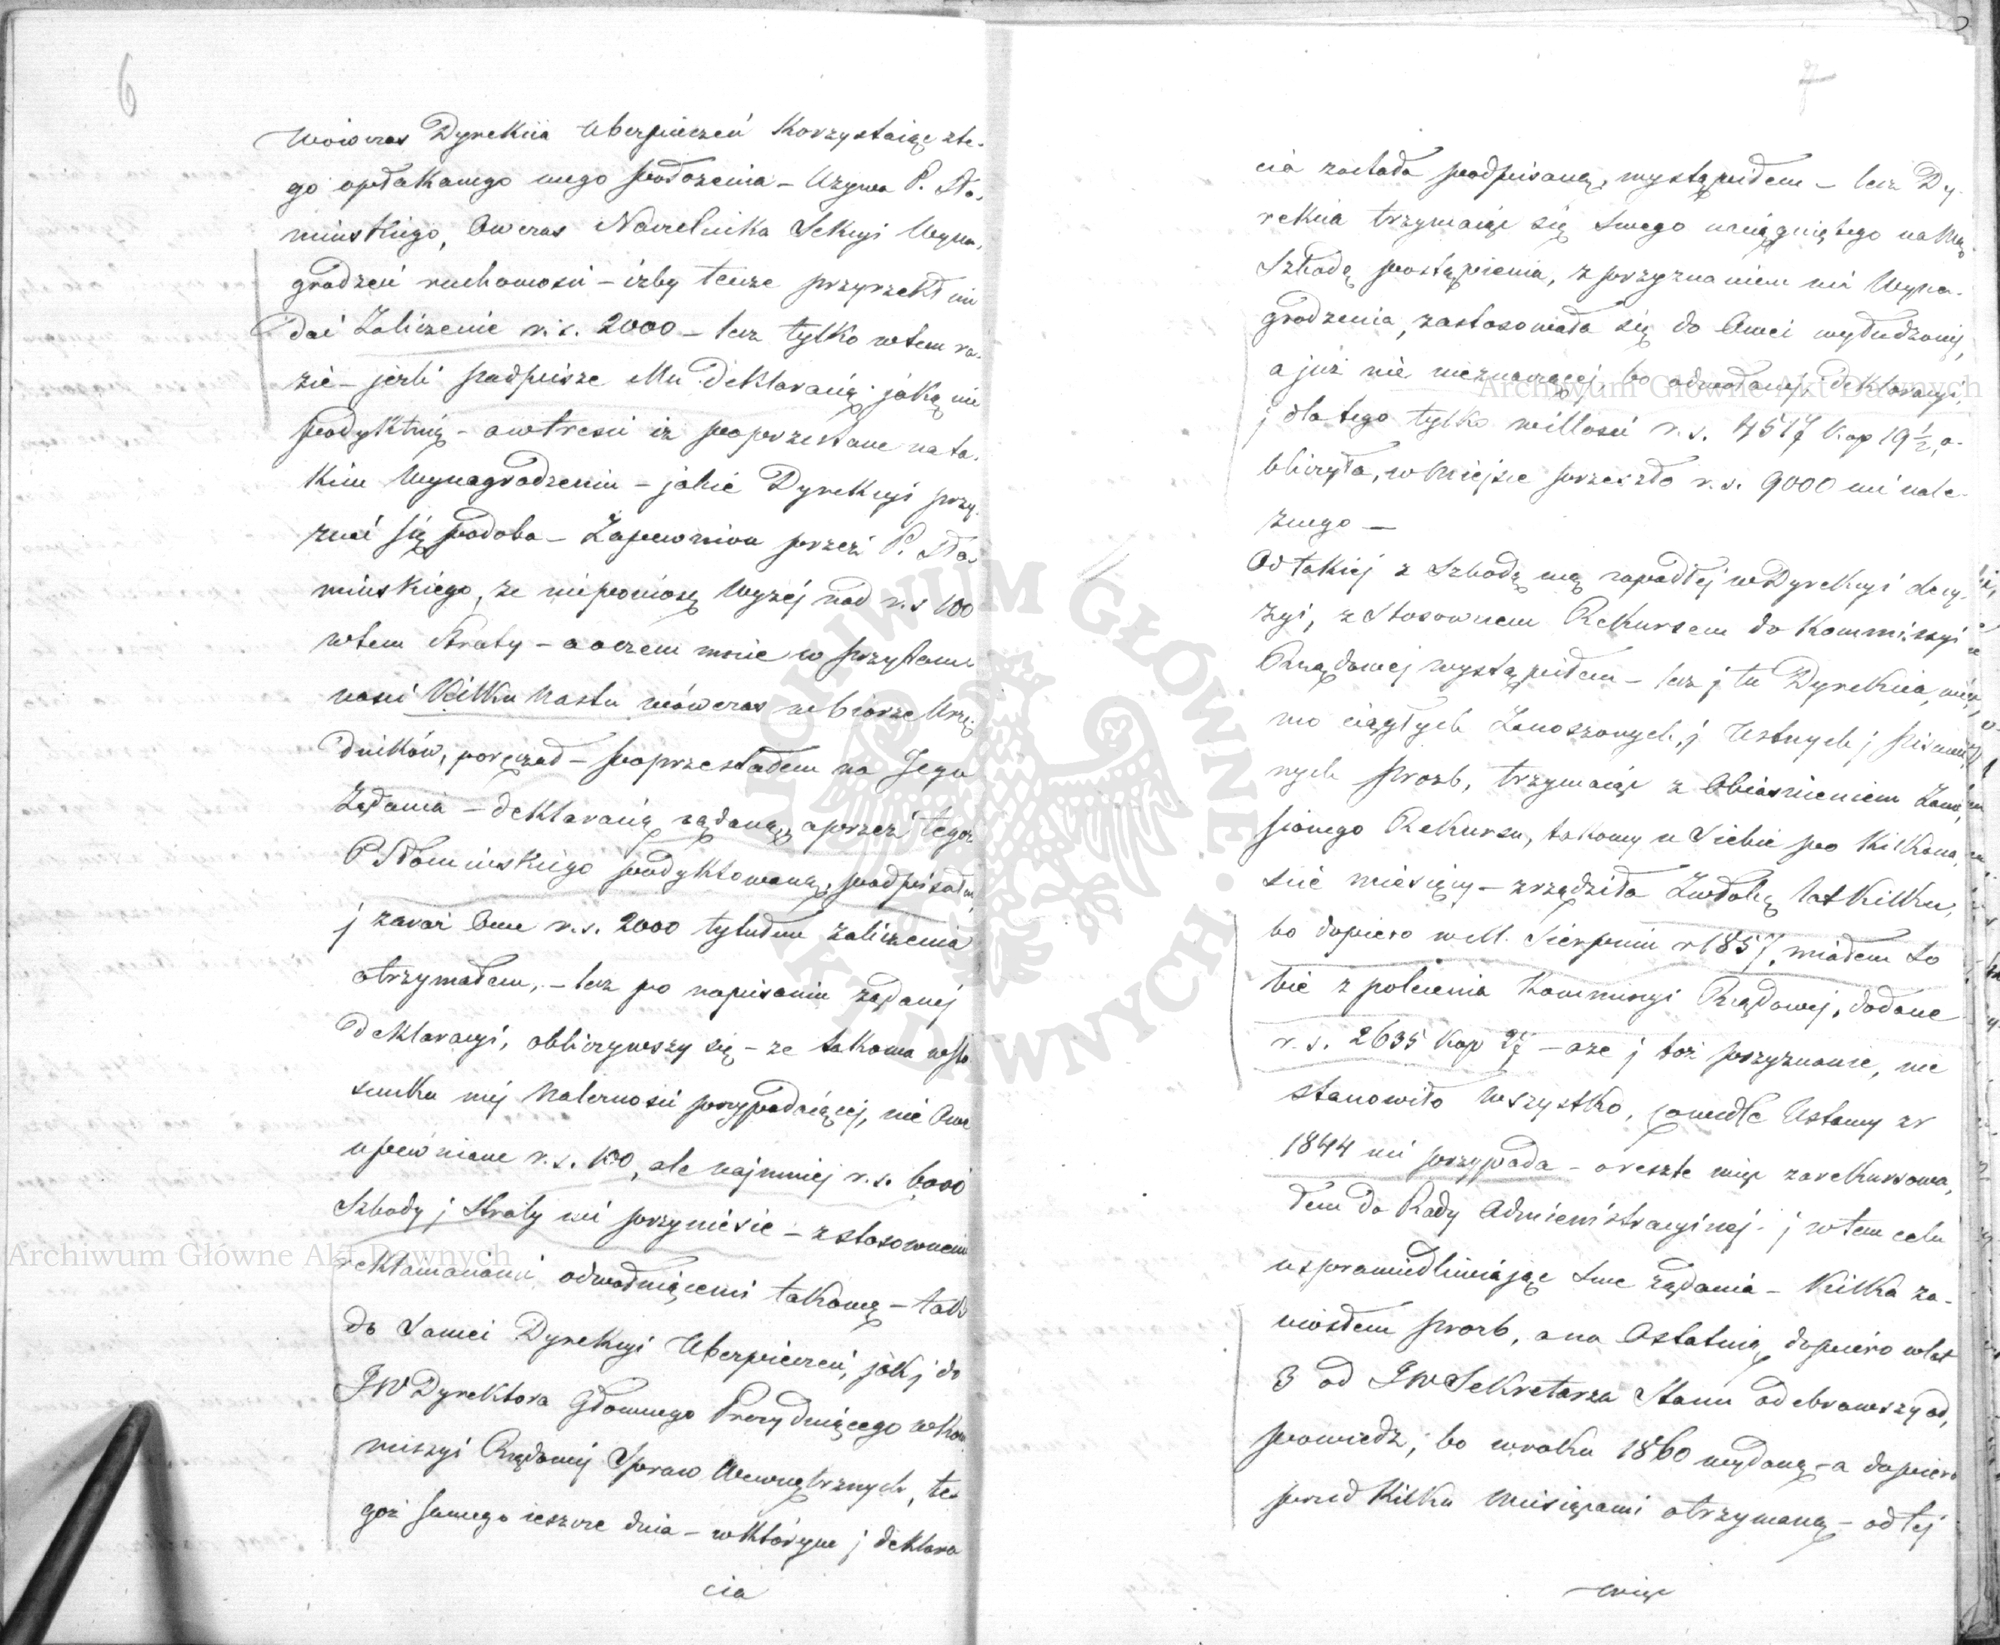 6
wówczas Dyrekcia Ubezpieczeń korzystaiąc zte-
go opłakanego mego położenia – Używa P. Sło-
mińskiego, Owczas Naczelnika Sekcyi Wyna-
grodzeń ruchomości – izby tenże przyrzekł mi
dać Zaliczenie r. s. 2000 – lecz tylko wtem ra-
zie – jeżli podpisze Mu deklaracią jaką mi
podyktuią – a wtresci iz poprzestane na ta-
kim Wynagrodzeniu – jakie Dyrekcyi przy-
znać się podoba – Zapewnion przez P. Sło-
mińskiego, że nieponiosę Wyzej nad r. s 100
wtem Straty – a oczem mnie w przytom-
nosci Kilku nastu wówczas w biorze Urzę-
dników, poręczał – poprzestałem na Jego
Żądania – deklaracią żądaną, a przez tegoż
P. Słomińskiego podyktowaną, podpisałem
j zaraz One r. s. 2000 tytułem zaliczenia
otrzymałem, – lecz po napisaniu żądanej
deklaracyi, obliczywszy się – że takowa wsto-
sunku mej Należnosci przypadaiącej, nie Owe
upewniane r. s. 100, ale najmniej r. s. 6000
Szkody j Straty mi przyniesie – zstosownemi
reklamacami odwołuiącemi takową – tak
do Samei Dyrekcyi Ubezpieczeń, jak j do
JW Dyrektora Głównego Prezyduiącego w Kom-
miszyi Rządowej Spraw Wewnętrznych, te-
goż samego ieszcze dnia – wktórym j deklara
cia
7
cia została podpisaną, wystąpiłem – lecz Dy-
rekcia trzymaiąc się swego na Mą
Szkodę postąpienia, z przyznaniem mi Wyna-
grodzenia, zastosowała się do Owei wyłudzonej,
a już nic nieznaczącej, bo odwołanej, deklaracyi,
j dla tego tylko willosci r. s. 4517 kop 19 1/2, o-
bliczyła, w Miejsce przeszło r. s. 9000 mi nale-
żnego –
Od takiej z Szkodą mą zapadłej w Dyrekcyi decy-
zyi, z Stosownem Rekursem do Kommiszyi
Rządowej wystąpiłem – lecz j tu Dyrekcia, mi-
mo ciągłych Zanoszonych, j Ustnych j pisem-
nych prozb, trzymaiąc z Obiasnieniem Zanie-
sionego Rekursu, takowy u Siebie po Kilkana-
scie miesięcy – zrządziła Zwłokę lat Kilku,
bo dopiero w M. Sierpniu r 1857, miałem So
bie z polecenia Kommiszyi Rządowej, dodane
r. s. 2635 kop 27 – a że j toż przyznanie, nie
stanowiło Wszystko, co wedle Ustawy zr
1844 mi przypada – oreszte więc zarekursowa-
łem do Rady Administracyinej – j wtem celu
usprawiedliwiając swe żądania – Kilka za-
niosłem prozb, a na Ostatnią, dopiero wlat
3 od JW Sekretarza Stanu odebrawszy od-
powiedz, bo wroku 1860 wydaną – a dopiero
przed Kilku Miesiącami otrzymaną – od tej
więc
Archiwum Główne Akt Dawnych
Archiwum Główne Akt Dawnych
ARCHIWUM GŁÓWNE AKT DAWNYCH